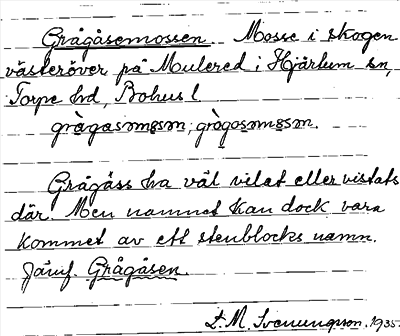 Grågåsemossen Mosse i skogen
västeröver på Mulered i Hjärtum sn,
Torpe hd, Bohusl
Grågåss ha väl vilat eller vistats
där. Men namnet kan dock vara
kommet av ett stenblocks namn.
Jämf. Grågåsen.
D. M. Svenungsson. 1935.